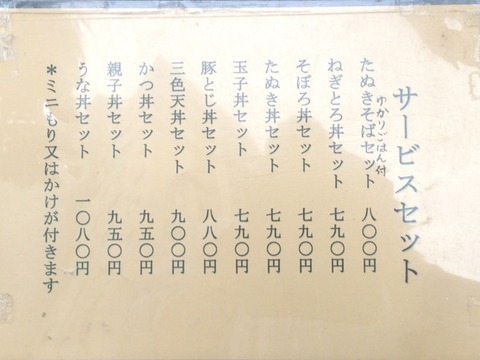 サービスセット
たぬきそばセット 八〇〇円
ゆかりごはん付
ねぎとろ丼セット 七九〇円
そぼろ丼セット 七九〇円
たぬき丼セット 七九〇円
玉子丼セット 七九〇円
豚とじ丼セット 八八〇円
三色天丼セット 九〇〇円
かつ丼セット 九五〇円
親子丼セット 九五〇円
うな丼セット 一〇八〇円
*ミニもり又はかけが付きます